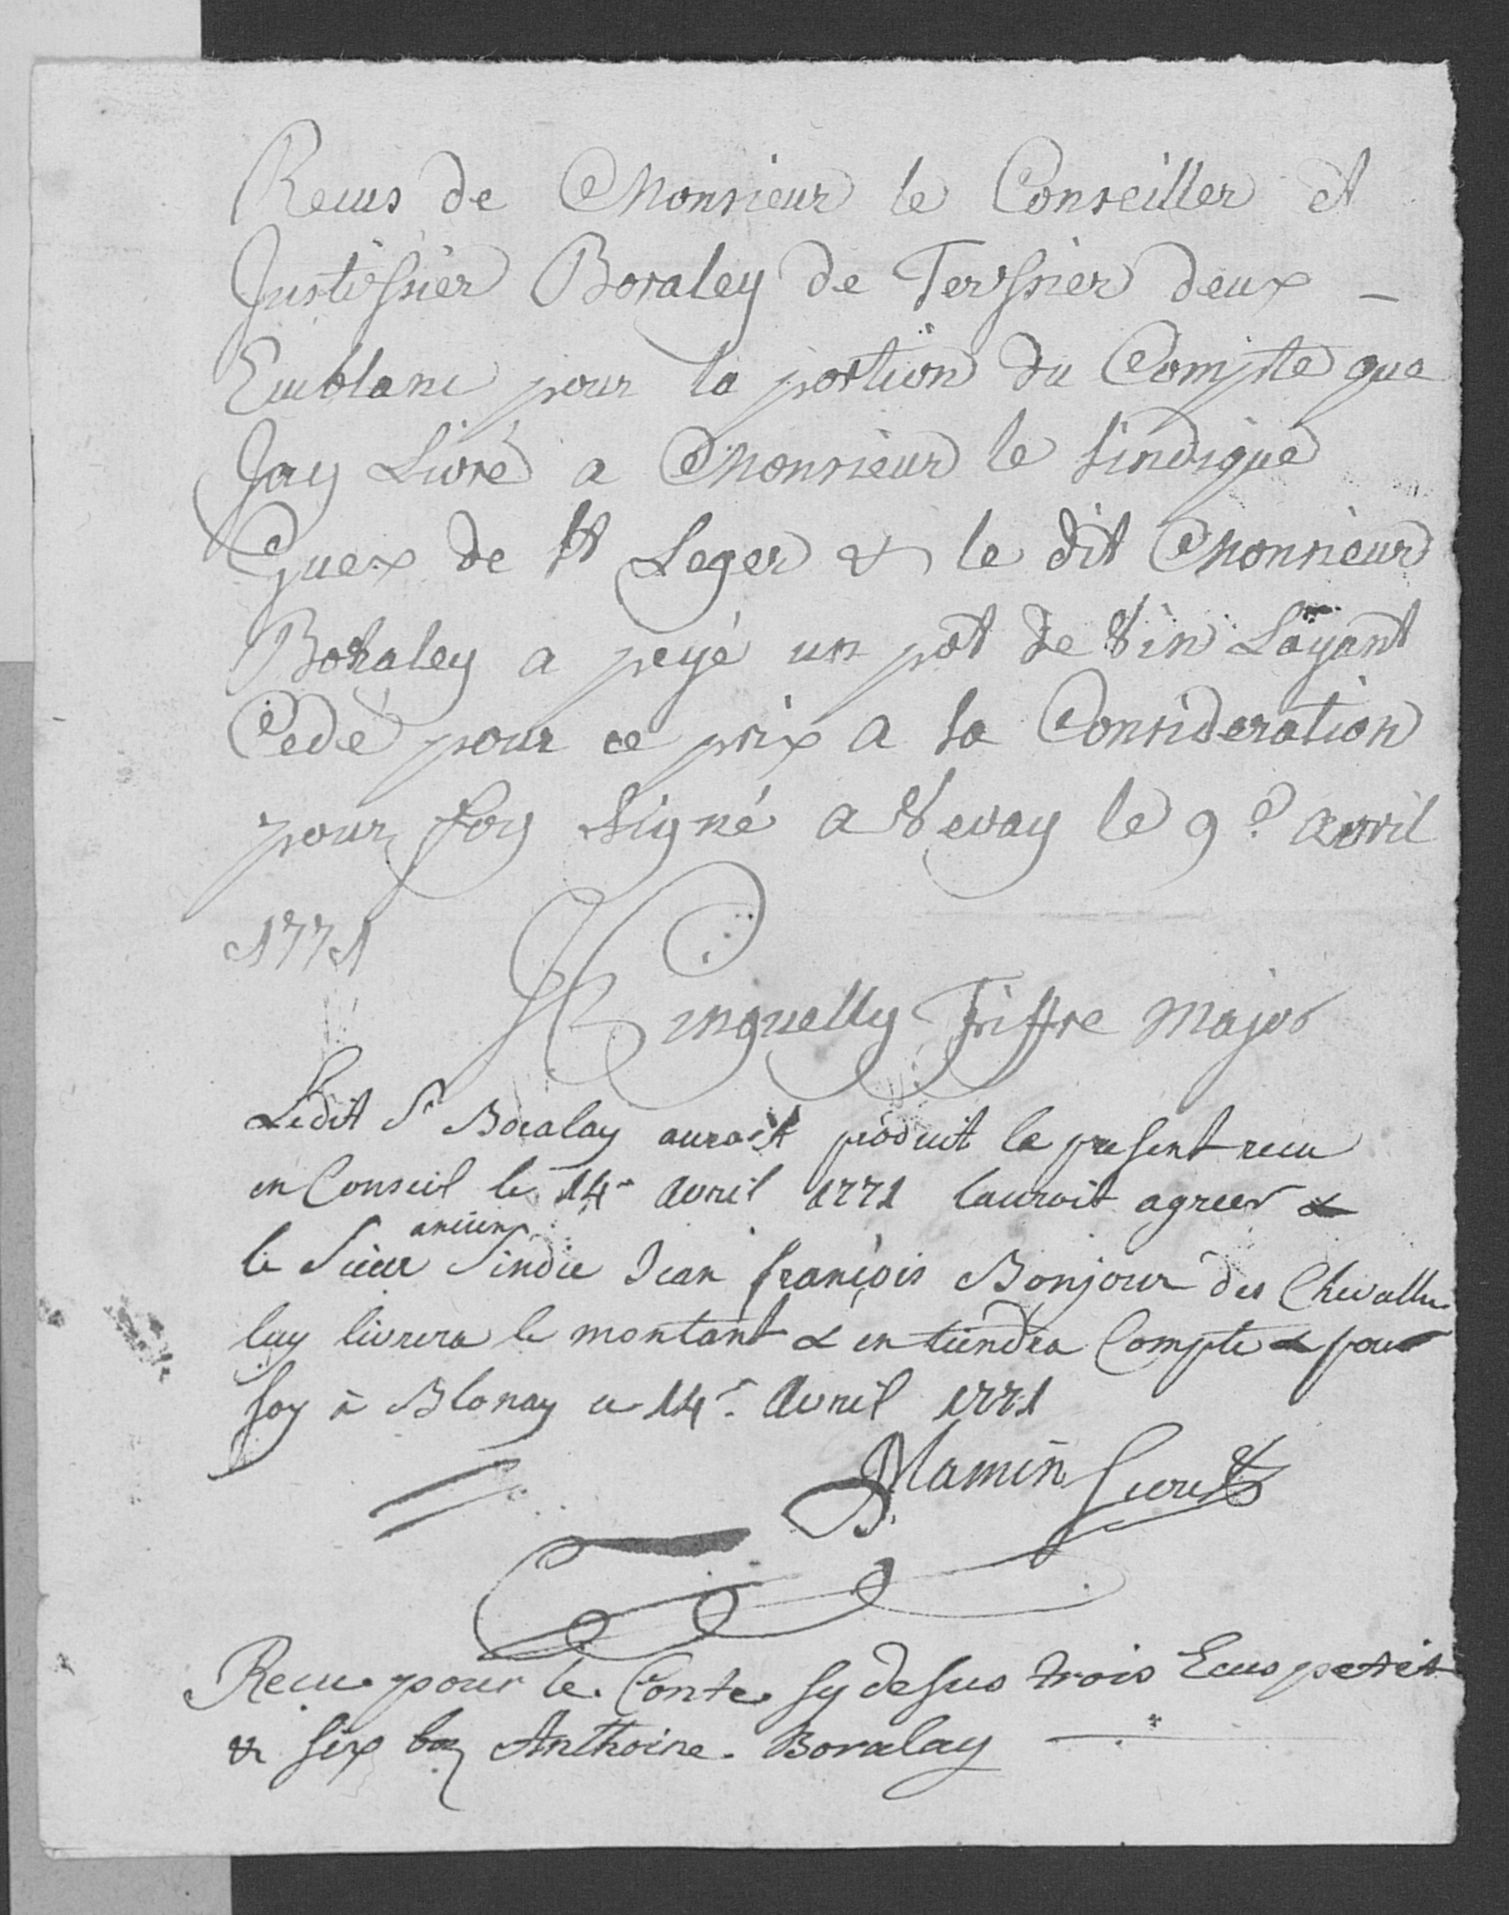 Recus de Monsieur le Conseiller et
Justissier Boraley de Terssier deux -
Ecublanc pour la portion du Compte que
Jay Livré a Monsieur le Sindique
Guex de St Leger & le dit Monsieur
Boraley a peyé un pot de Vin Layant
Cedé pour ce prix a sa Consideration
pour foy Signé a Vevay le 9e. avril
1771
Pinguelly Fiffre Major
Ledit Sr Boralay auroit produit le present recu
en Conseil le 14e avril 1771 lauroit agreer &
le Sieur ancien Sindic Jean françois Bonjour des Chevalley
luy livrera le montant & en tiendra Compte & pour
foy à Blonay ce 14e. Avril 1771
Mamin Secret
Recu pour le Conte sy desus trois Ecus petit
& six baz Anthoine Boralay